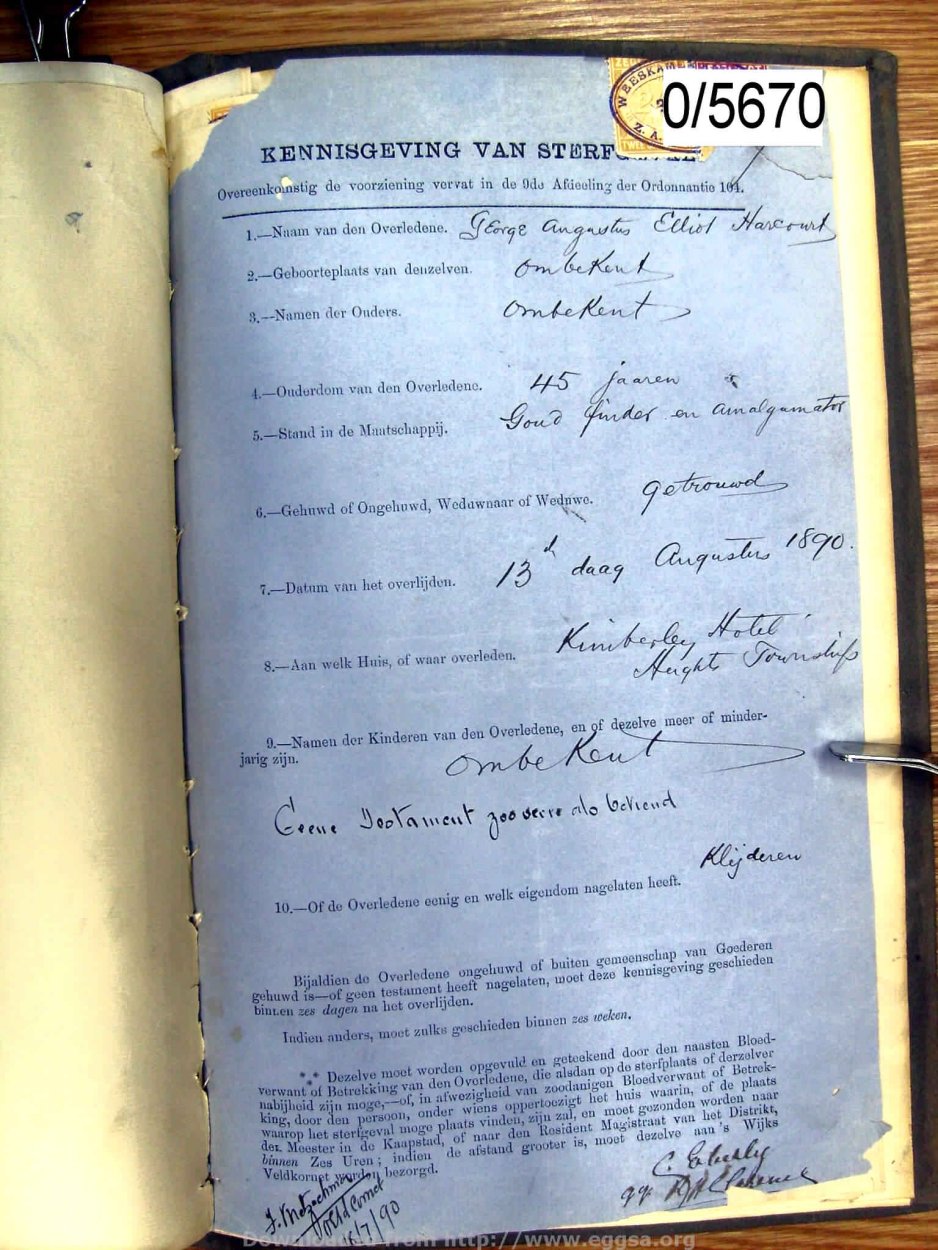 WEESKAME
Z. A.
0/5670
KENNISGEVING VAN STERF
Overeenkomstig de voorziening vervat in de 9de Afdeeling der Ordonnantie 104.
1.—Naam van den Overledene. George Augustus Elliot Harcourt
2.—Geboorteplaats van denzelven. ombekent
3.—Namen der Ouders. Ombekent
4.—Ouderdom van den Overledene. 45 jaaren
5.—Stand in de Maatschappij. Goud finder en amalgamator
6.—Gehuwd of Ongehuwd, Weduwnaar of Weduwe. getrouwd
7.—Datum van het overlijden. 13 daag Augustus 1890.
8.—Aan welk Huis, of waar overleden. Kimberley Hotel
Heights Township
9.—Namen der Kinderen van den Overledene, en of dezelve meer of minder-
jarig zijn. ombekent
Geene Testament zoo verre als bekend
Klijderen
10.—Of de Overledene eenig en welk eigendom nagelaten heeft.
Bijaldien de Overledene ongehuwd of buiten gemeenschap van Goederen
gehuwd is—of geen testament heeft nagelaten, moet deze kennisgeving geschieden
binnen zes dagen na het overlijden.
Indien anders, moet zulks geschieden binnen zes weken.
*** Dezelve moet worden opgevuld en geteekend door den naasten Bloed-
verwant of Betrekking van den Overledene, die alsdan op de sterfplaats of derzelver
nabijheid zijn moge,—of, in afwezigheid van zoodanigen Bloedverwant of Betrek-
king, door den persoon, onder wiens oppertoezigt het huis waarin, of de plaats
waarop het sterfgeval moge plaats vinden, zijn zal, en moet gezonden worden naar
den Meester in de Kaapstad, of naar den Resident Magistraat van het Distrikt,
binnen Zes Uren; indien de afstand grooter is, moet dezelve aan 's Wijks
Veldkornet worden bezorgd.
Veldcornet
/7/90
Downloaded from http://www.eggsa.org